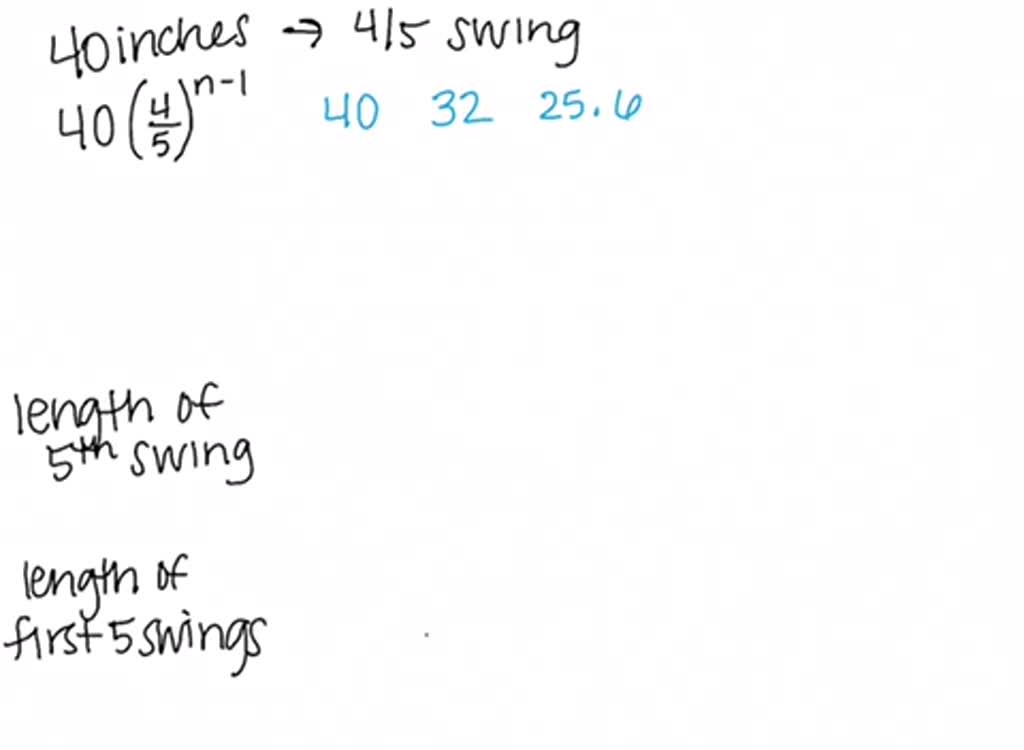 40 inches → 4/5 swing
40(4/5)^{n-1} 40 32 25.6
length of
5th swing
length of
first 5 swings